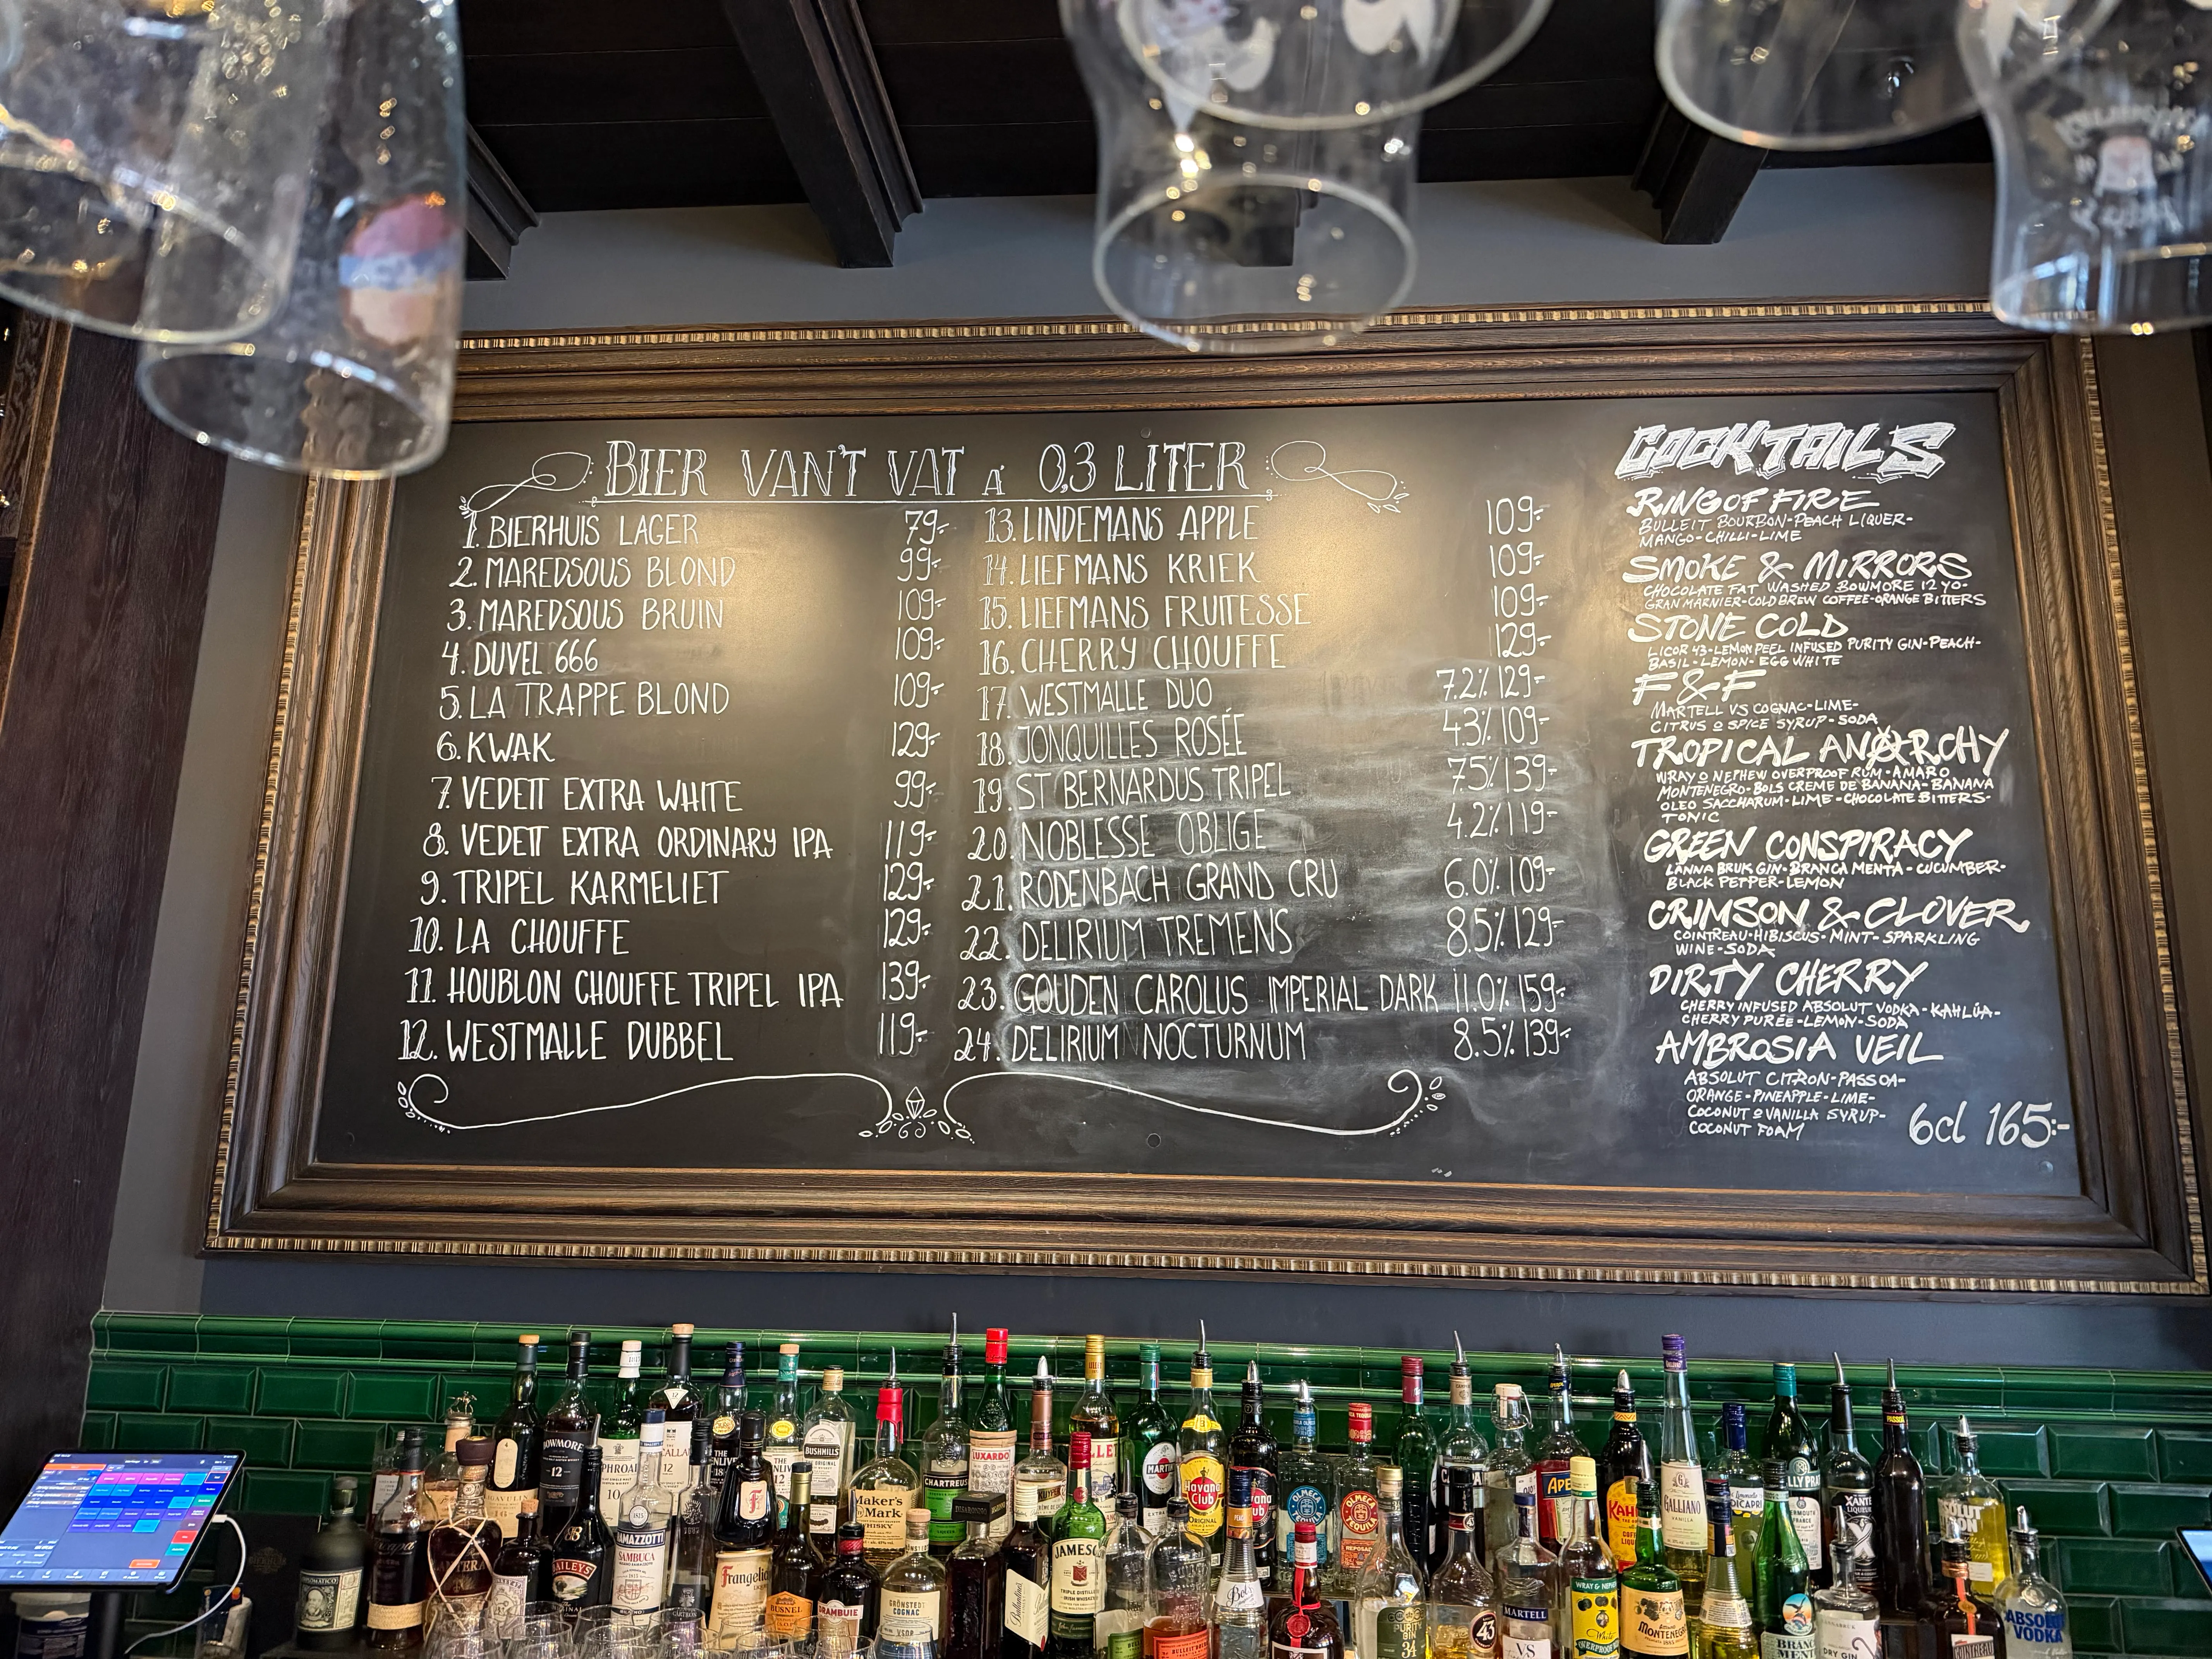 BIER VAN'T VAT Á 0,3 LITER
1. BIERHUIS LAGER 79:-
2. MAREDSOUS BLOND 99:-
3. MAREDSOUS BRUIN 109:-
4. DUVEL 666 109:-
5. LA TRAPPE BLOND 109:-
6. KWAK 129:-
7. VEDETT EXTRA WHITE 99:-
8. VEDETT EXTRA ORDINARY IPA 119:-
9. TRIPEL KARMELIET 129:-
10. LA CHOUFFE 129:-
11. HOUBLON CHOUFFE TRIPEL IPA 139:-
12. WESTMALLE DUBBEL 119:-
13. LINDEMANS APPLE 109:-
14. LIEFMANS KRIEK 109:-
15. LIEFMANS FRUITESSE 109:-
16. CHERRY CHOUFFE 129:-
17. WESTMALLE DUO 7.2% 129:-
18. JONQUILLES ROSÉE 4.3% 109:-
19. ST BERNARDUS TRIPEL 7.5% 139:-
20. NOBLESSE OBLIGE 4.2% 119:-
21. RODENBACH GRAND CRU 6.0% 109:-
22. DELIRIUM TREMENS 8.5% 129:-
23. GOUDEN CAROLUS IMPERIAL DARK 11.0% 159:-
24. DELIRIUM NOCTURNUM 8.5% 139:-
COCKTAILS
RING OF FIRE
BULLEIT BOURBON-PEACH LIQUER-
MANGO-CHILLI-LIME
SMOKE & MIRRORS
CHOCOLATE FAT WASHED BOWMORE 12 YO-
GRAN MARNIER-COLD BREW COFFEE-ORANGE BITTERS
STONE COLD
LICOR 43-LEMON PEEL INFUSED PURITY GIN-PEACH-
BASIL-LEMON-EGG WHITE
F&F
MARTELL VS COGNAC-LIME-
CITRUS & SPICE SYRUP-SODA
TROPICAL ANARCHY
WRAY & NEPHEW OVERPROOF RUM-AMARO
MONTENEGRO-BOLS CREME DE BANANA-BANANA
OLEO SACCHARUM-LIME-CHOCOLATE BITTERS-
TONIC
GREEN CONSPIRACY
LÅNNA BRUK GIN-BRANCA MENTA-CUCUMBER-
BLACK PEPPER-LEMON
CRIMSON & CLOVER
COINTREAU-HIBISCUS-MINT-SPARKLING
WINE-SODA
DIRTY CHERRY
CHERRY INFUSED ABSOLUT VODKA-KAHLÚA-
CHERRY PURÉE-LEMON-SODA
AMBROSIA VEIL
ABSOLUT CITRON-PASSOA-
ORANGE-PINEAPPLE-LIME-
COCONUT & VANILLA SYRUP-
COCONUT FOAM
6cl 165:-
BOWMORE
12
BUSHMILLS
ORIGINAL
CHARTREU
LUXARDO
Maker's
Mark
WHISKY
Havana
Club
OLMECA
TEQUILA
OLMECA
TEQUILA
GALLIANO
RAMAZZOTTI
SAMBUCA
BAILEYS
Frangelico
BUSNEL
DRAMBUIE
GRÖNSTEDTS
COGNAC
VSOP
JAMESON
Bols
43
PURITY
GIN
34
MARTELL
VS
WRAY & NEPHEW
MONTENEGRO
BRANCA
MENTA
DRY GIN
COINTREAU
ABSOLUT
VODKA